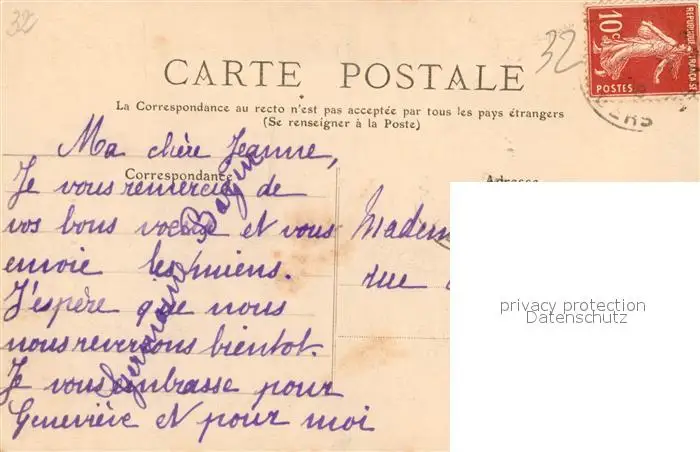 32
32
10c
RÉPUBLIQUE FRANÇAISE
POSTES
CARTE POSTALE
La Correspondance au recto n'est pas acceptée par tous les pays étrangers
(Se renseigner à la Poste)
Correspondance
Adresse
Ma chère Jeanne,
Je vous remercie de
vos bons voeux et vous
envoie les miens.
J'espère que nous
nous reverrons bientot.
Je vous embrasse pour
Geneviève et pour moi
Germaine
Madem
rue
privacy protection
Datenschutz